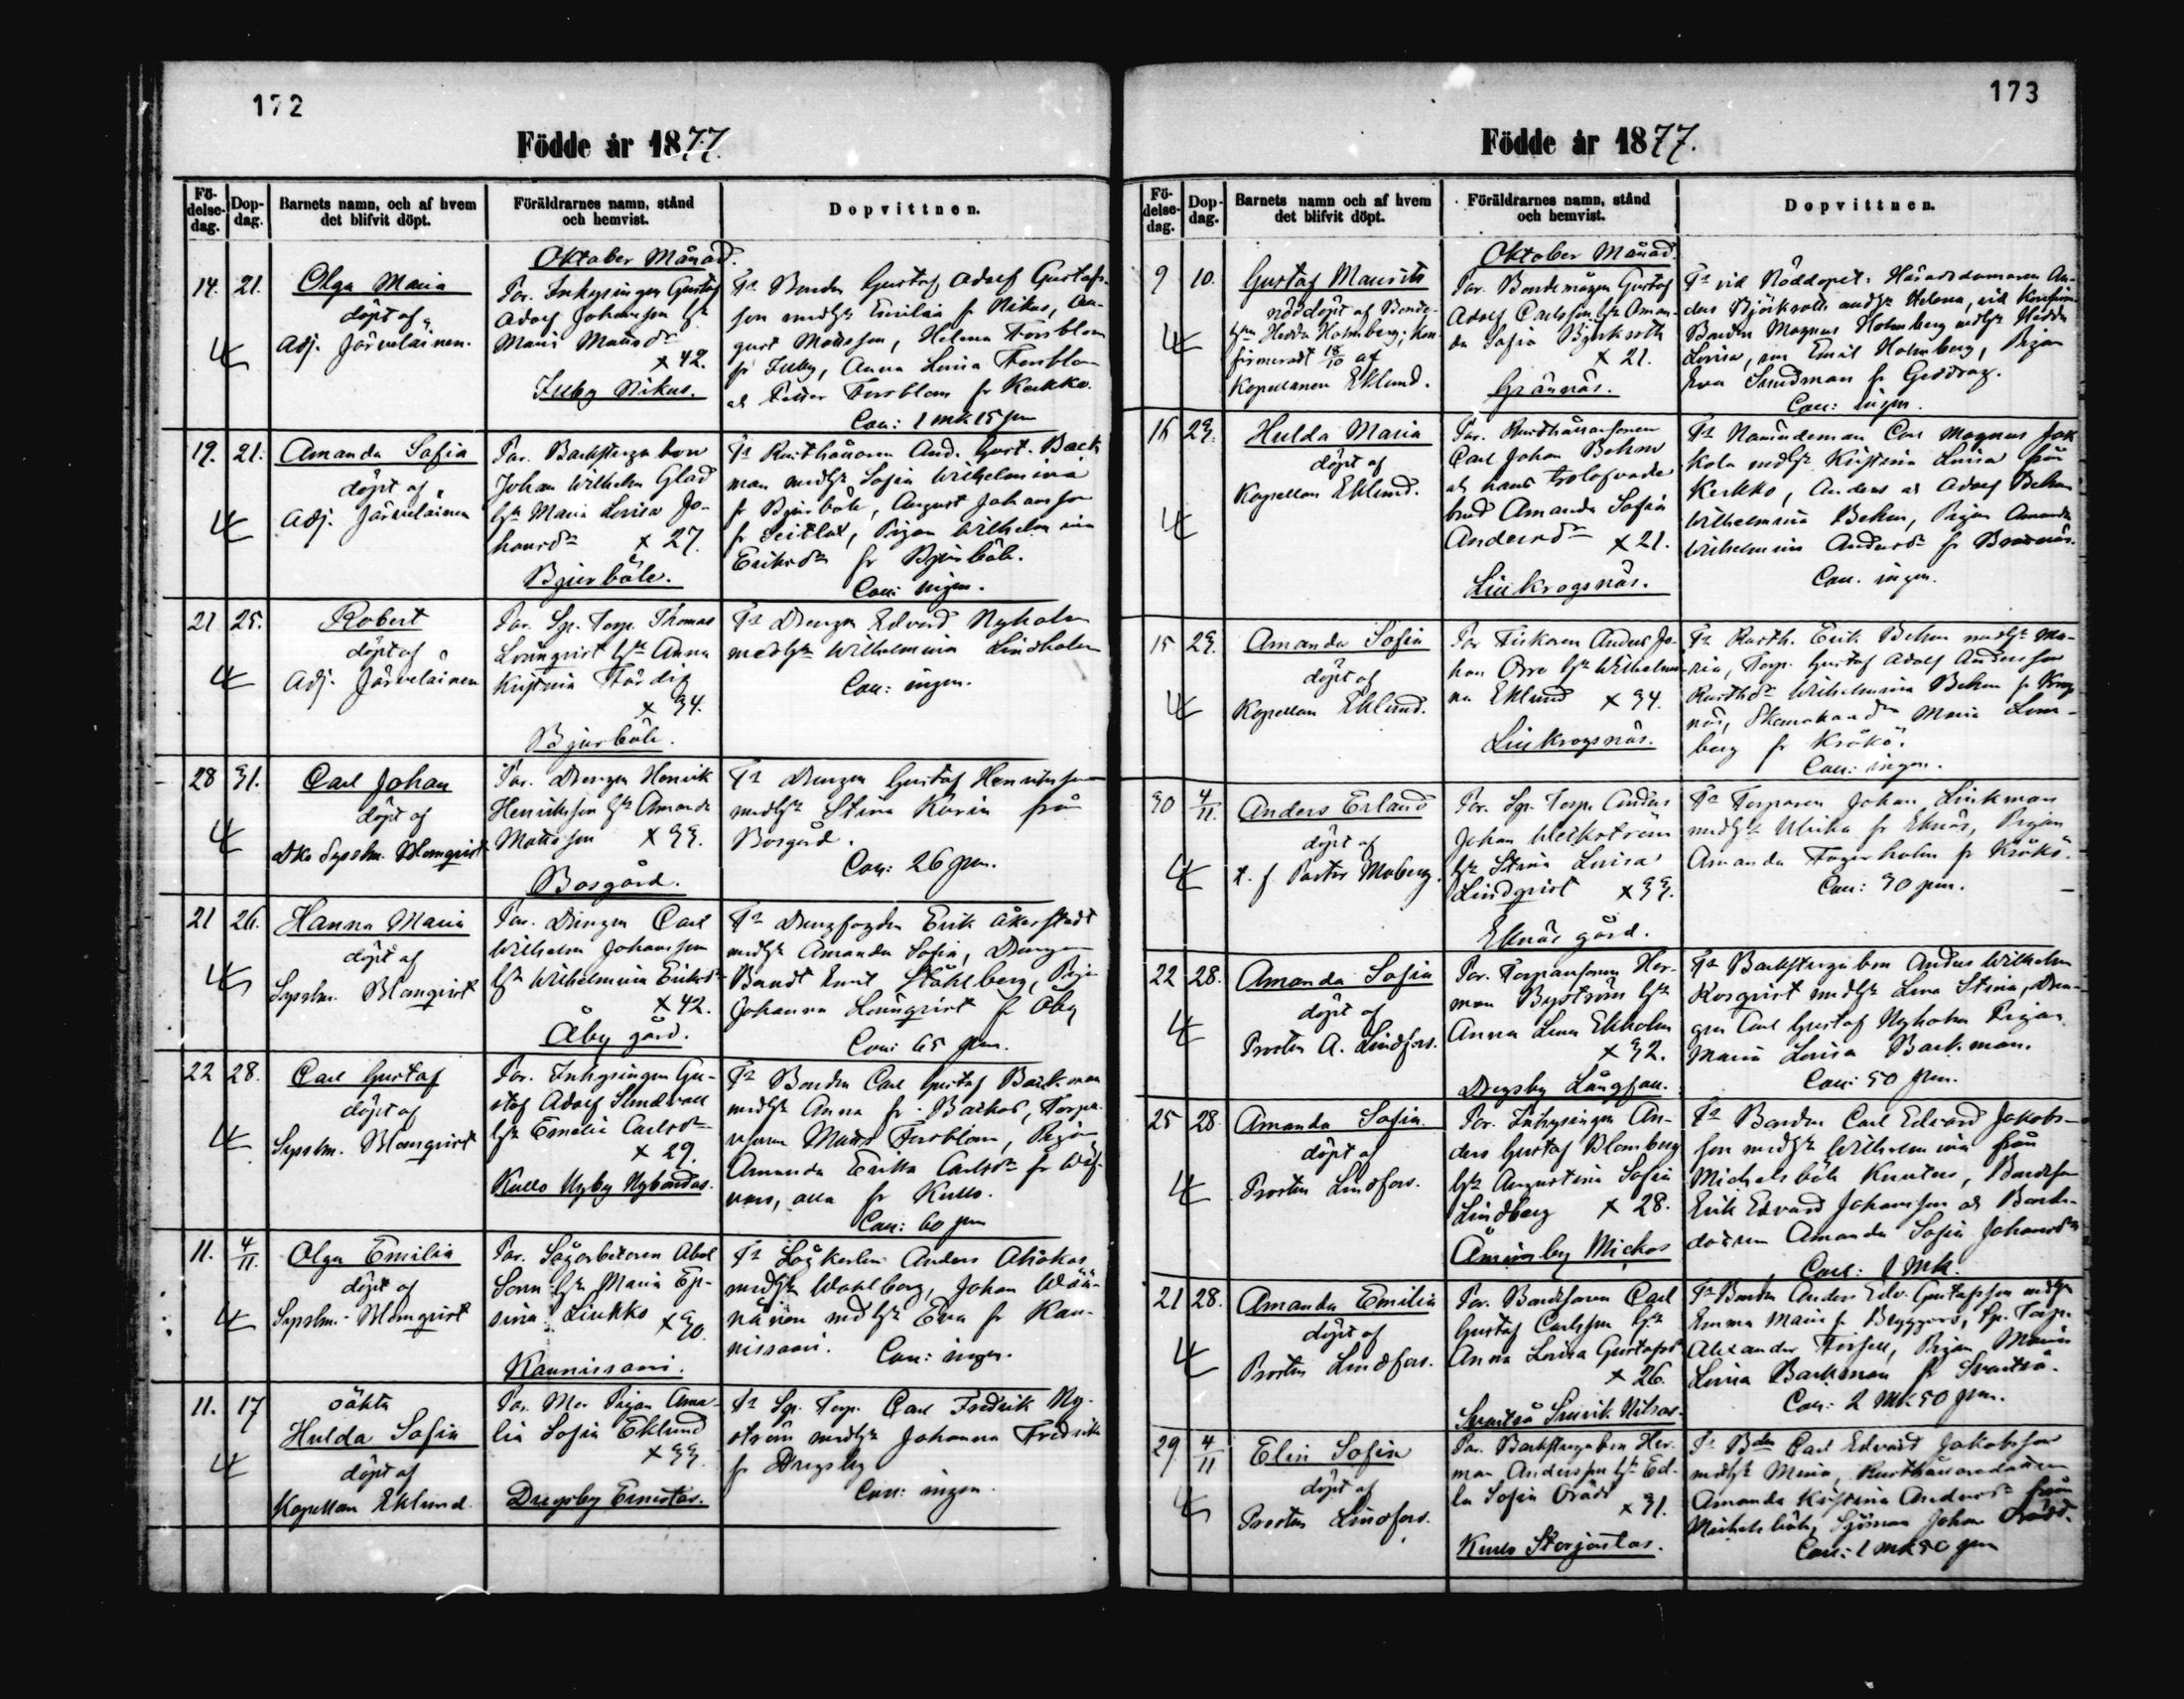 172
Födde år 1877.
Fö-
delse-
dag.
Dop-
dag.
Barnets namn, och af hvem
det blifvit döpt.
Föräldrarnes namn, stånd
och hemvist.
Dopvittnen.
Oktober Månad.
14. 21.
Olga Maria
döpt af
Adj. Järveläinen.
Par. Inhysingen Gustaf
Adolf Johansson hst
Maria Matsdr
x 42.
Illby Nikus.
Fa Bonden Gustaf Adolf Gustafs-
son medhst Emilia fr Nikus, Au-
gust Mattsson, Helena Forsblom
fr Illby, Anna Lovisa Forsblom
och Petter Forsblom fr Kerkko.
Coll: 1 mk 15 pm
19. 21.
Amanda Sofia
döpt af
Adj. Järveläinen
Par. Backstugubon
Johan Wilhelm Glad
hst Maria Lovisa Jo-
hansdr x 27.
Bjurböle.
Fa Rusthållaren And. Gust. Back-
man medhst Sofia Wilhelmina
fr Bjurböle, August Johansson
fr Seitlax, Pigan Wilhelmina
Eriksdr fr Bjurböle.
Coll: ingen.
21 25.
Robert
döpt af
Adj. Järveläinen
Par. Sp. Torp. Thomas
Lönnqvist hst Anna
Kristina Färdig
x 34.
Bjurböle.
Fa Drengen Edvard Nyholm
medhst Wilhelmina Lindholm
Coll: ingen.
28 31.
Carl Johan
döpt af
Dko Sysslm. Blomqvist
Par. Drengen Henrik
Henriksson hst Amanda
Mattsson x 33.
Bosgård.
Fa Drengen Gustaf Henriksson
medhst Stina Karin från
Bosgård.
Coll: 26 pm.
21 26.
Hanna Maria
döpt af
Sysslm. Blomqvist
Par. Drengen Carl
Wilhelm Johansson
hst Wilhelmina Eriksdr
x 42.
Åby gård.
Fa Drengfogden Erik Åkerstedt
medhst Amanda Sofia, Drengen
Bernt Emil Ståhlberg, Pigan
Johanna Lönnqvist fr Åby
Coll: 65 pm.
22 28.
Carl Gustaf
döpt af
Sysslm. Blomqvist
Par. Inhysingen Gu-
staf Adolf Sundvall
hst Emelie Carlsdr
x 29.
Kullo Nyby Nybondas.
Fa Bonden Carl Gustaf Backman
medhst Anna fr Backas, Torpa-
resonen Matts Forsblom, Pigan
Amanda Erika Carlsdr fr
alla fr Kullo.
Coll: 60 pm
11. 4/11.
Olga Emilia
döpt af
Sysslm. Blomqvist
Par. Sågarbetaren Abel
hst Maria
Liukko x 30.
Kaunissaari.
Fa Sågkarlen Anders Ahokas
medhst Wahlberg, Johan Wää-
nänen medhst Eva fr Kau-
nissaari. Coll: ingen.
11. 17
oäkta
Hulda Sofia
döpt af
Kapellan Eklund
Par. Mor Pigan Ama-
lia Sofia Eklund
x 33.
Drägsby Ernestas.
Fa Sp. Torp. Carl Fredrik Ny-
ström medhst Johanna Fredrika
fr Drägsby
Coll: ingen.
173
Födde år 1877.
Fö-
delse-
dag.
Dop-
dag.
Barnets namn och af hvem
det blifvit döpt.
Föräldrarnes namn, stånd
och hemvist.
Dopvittnen.
Oktober Månad.
9 10.
Gustaf Maurits
nöddöpt af Bonde-
Hedda Holmberg; Kon-
firmeradt 18/10 af
Kapellanen Eklund.
Par. Bondemågen Gustaf
Adolf Carlsson hst Aman-
da Sofia Björksell
x 21.
Grännäs.
Fa vid Nöddopet: Häradsdomaren An-
ders Björksell medhst Helena, vid Konfirm.
Bonden Magnus Holmberg medhst Hedda
Lovisa, Emil Holmberg, Pigan
Eva Sundman fr Gäddrag.
Coll: ingen.
16 23.
Hulda Maria
döpt af
Kapellan Eklund.
Par. Rusthållaresonen
Carl Johan Behm
och hans trolofvade
brud Amanda Sofia
Andersdr x 21.
Lill Krogsnäs.
Fa Nämndeman Carl Magnus Jak-
kola medhst Kristina Lovisa från
Kerkko, Anders och Adolf Behm
Wilhelmina Behm, Pigan Amanda
Wilhelmina Andersdr fr
Coll. ingen.
15 23.
Amanda Sofia
döpt af
Kapellan Eklund.
Par Fiskaren Anders Jo-
han Orre hst Wilhelmi-
na Eklund x 34.
Lill Krogsnäs.
Fa Rusth. Erik Behm medhst Ma-
ria, Torp. Gustaf Adolf Andersson
Rusthdr Wilhelmina Behm fr Krog-
näs, Maria Lind-
berg fr Kråkö.
Coll: ingen.
30 4/11.
Anders Erland
döpt af
t. f. Pastor Moberg.
Par. Sp. Torp. Anders
Johan Weckström
hst Stina Lovisa
Lindqvist x 33.
Eknäs gård.
Fa Torparen Johan Linkman
medhst Ulrika fr Eknäs, Pigan
Amanda Fagerholm fr Kråkö.
Coll: 30 pm.
22 28.
Amanda Sofia
döpt af
Prosten A. Lindfors.
Par. Torparsonen Her-
man Byström hst
Anna Lena Ekholm
x 32.
Drägsby Långfall.
Fa Backstugubon Anders Wilhelm
Rosqvist medhst Lena Stina, Dren-
gen Carl Gustaf Nyholm Pigan
Maria Lovisa Backman.
Coll: 50 pm.
25 28
Amanda Sofia.
döpt af
Prosten Lindfors.
Par. Inhysingen An-
ders Gustaf Blomberg
hst Augustina Sofia
Lindberg x 28.
Åminsby Michos
Fa Bonden Carl Edvard Jakobs-
son medhst Wilhelmina från
Michelsböle Knuters, Bondeson
Erik Edvard Johansson och Bonde-
dottren Amanda Sofia Johansdr
Coll: 1 mk.
21 28.
Amanda Emilia
döpt af
Prosten Lindfors.
Par. Bondesonen Carl
Gustaf Carlsson hst
Anna Lovisa Gustafsdr
x 26.
Svartså Nilsas.
Fa Bonden Anders Edv. Gustafsson medhst
Emma Maria fr Bryggars, Sp. Torp.
Alexander Forsell, Pigan Maria
Lovisa Backman fr Svartså.
Coll: 2 mk 50 pm.
29 4/11
Elin Sofia
döpt af
Prosten Lindfors.
Par. Backstugubon Her-
man Andersson hst Ed-
la Sofia Öräds
x 31.
Kullo Storjostas.
Fa Bden Carl Edvard Jakobsson
medhst Mina, Rusthållaredottren
Amanda Kristina Andersdr från
Michelsböle, Sjöman Johan Öräds.
Coll: 1 mk 50 pm